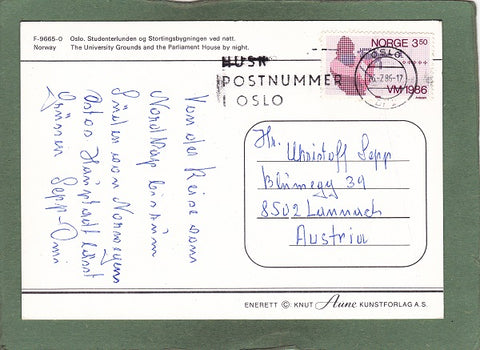 F-9665-0 Oslo. Studenterlunden og Stortingsbygningen ved natt.
Norway The University Grounds and the Parliament House by night.
HUSK
POSTNUMMER
I OSLO
NORGE 350
VM 1986
OSLO
Von der Reise vom
Nordkap bis zum
Süden von Norwegens
Hauptstadt lässt
Grüssen Sepp-Omi
Hr. Christoff Sepp
Blumegg 39
8502 Lannach
Austria
ENERETT © KNUT Aune KUNSTFORLAG A.S.